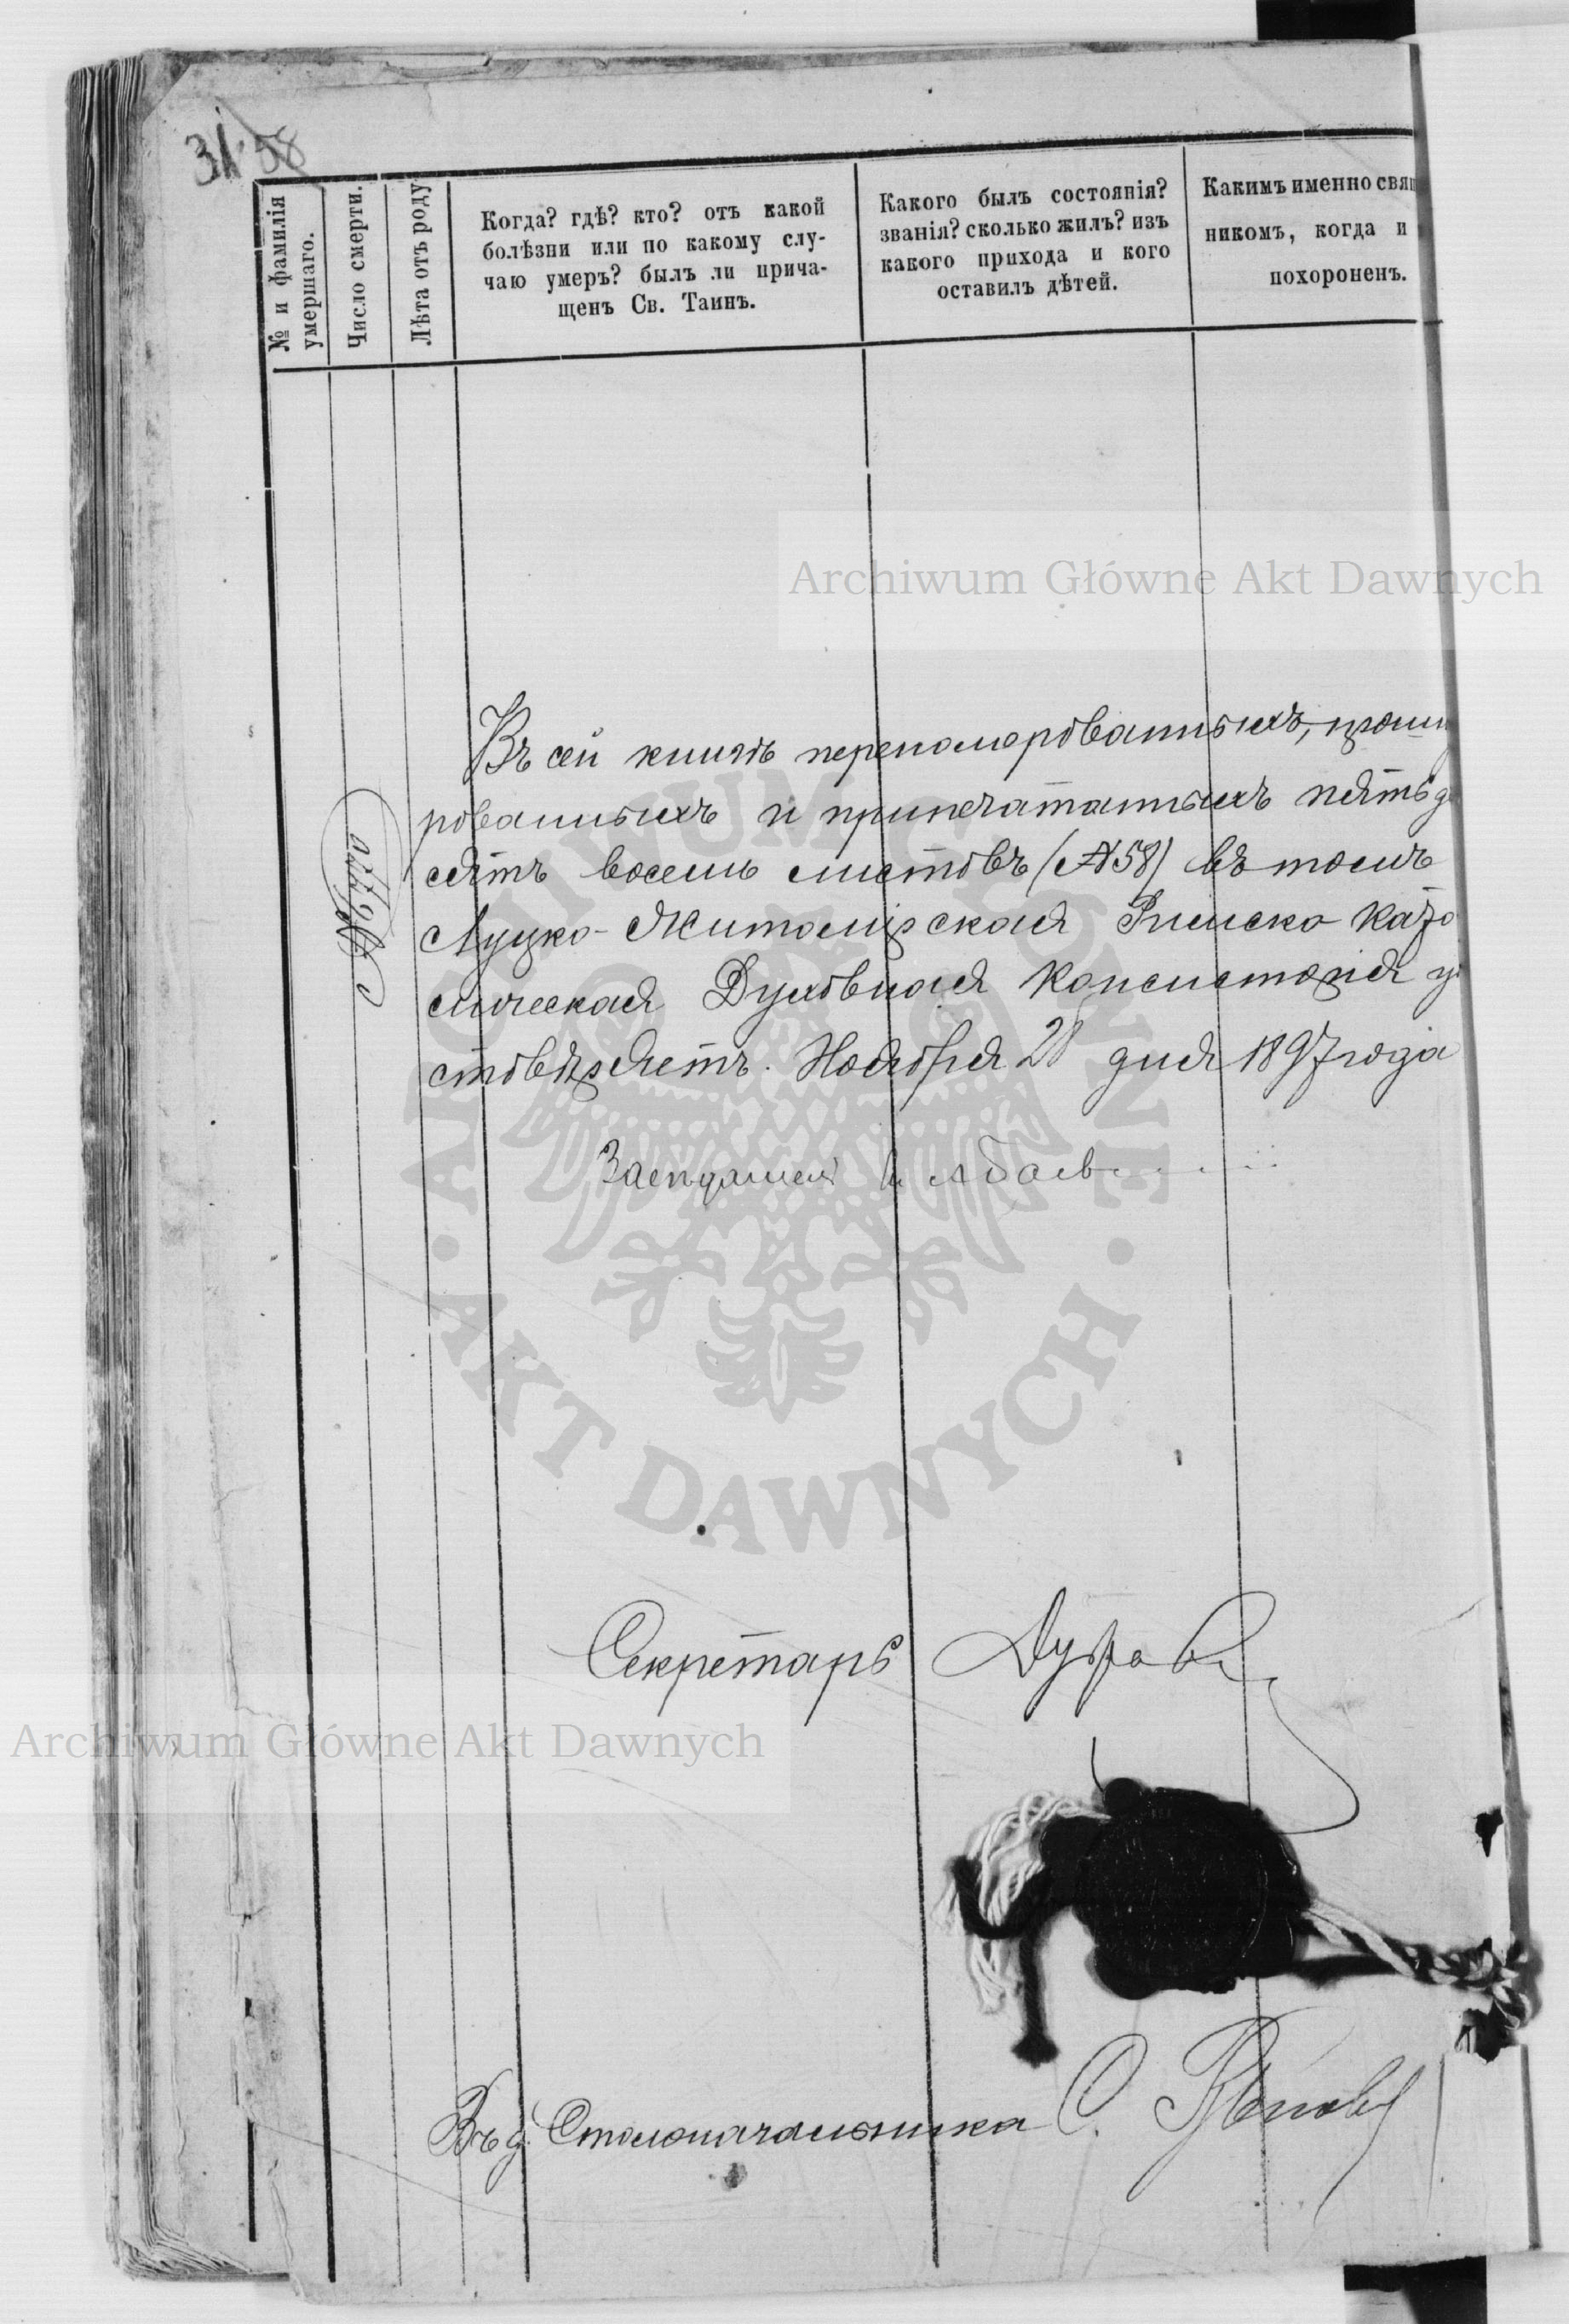 31 58
№ и фамилія
умершаго.
Число смерти.
Лѣта отъ роду
Когда? гдѣ? кто? отъ какой
болѣзни или по какому слу-
чаю умеръ? былъ ли прича-
щенъ Св. Таинъ.
Какого былъ состоянія?
званія? сколько жилъ? изъ
какого прихода и кого
оставилъ дѣтей.
Какимъ именно свящ
никомъ, когда и
похороненъ.
Archiwum Główne Akt Dawnych
Въ сей книгѣ переномерованныхъ, прошну
рованныхъ и припечатанныхъ пятьде
сятъ восемь листовъ (№58) въ томъ
Луцко-Житомірская Римско Като
лическая Духовная Консисторія у
стовѣряетъ. Ноября 28 дня 1897 года
Засѣдатель
Секретарь
Archiwum Główne Akt Dawnych
Въ д. Столоначальника С.
ARCHIWUM GŁÓWNE
AKT DAWNYCH